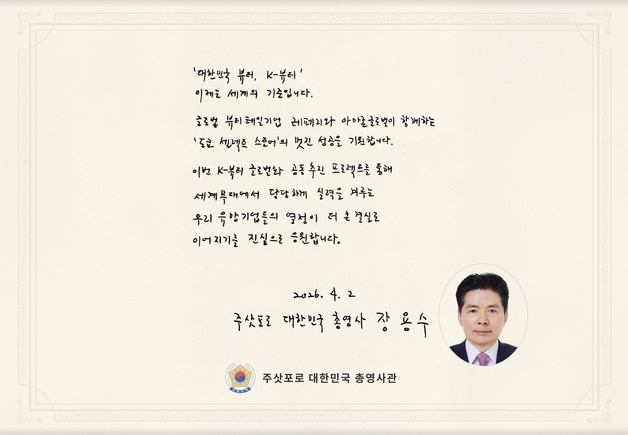 '대한민국 뷰티, K-뷰티'
이제는 세계의 기준입니다.
글로벌 뷰티테인기업 레페리와 아마존글로벌이 함께하는
'도쿄 셀렉트 스토어'의 멋진 성공을 기원합니다.
이번 K-뷰티 글로벌화 공동 추진 프로젝트를 통해
세계무대에서 당당하게 실력을 겨루는
우리 유망기업들의 열정이 더 큰 결실로
이어지기를 진심으로 응원합니다.
2026. 4. 2
주삿포로 대한민국 총영사 장용수
주삿포로 대한민국 총영사관